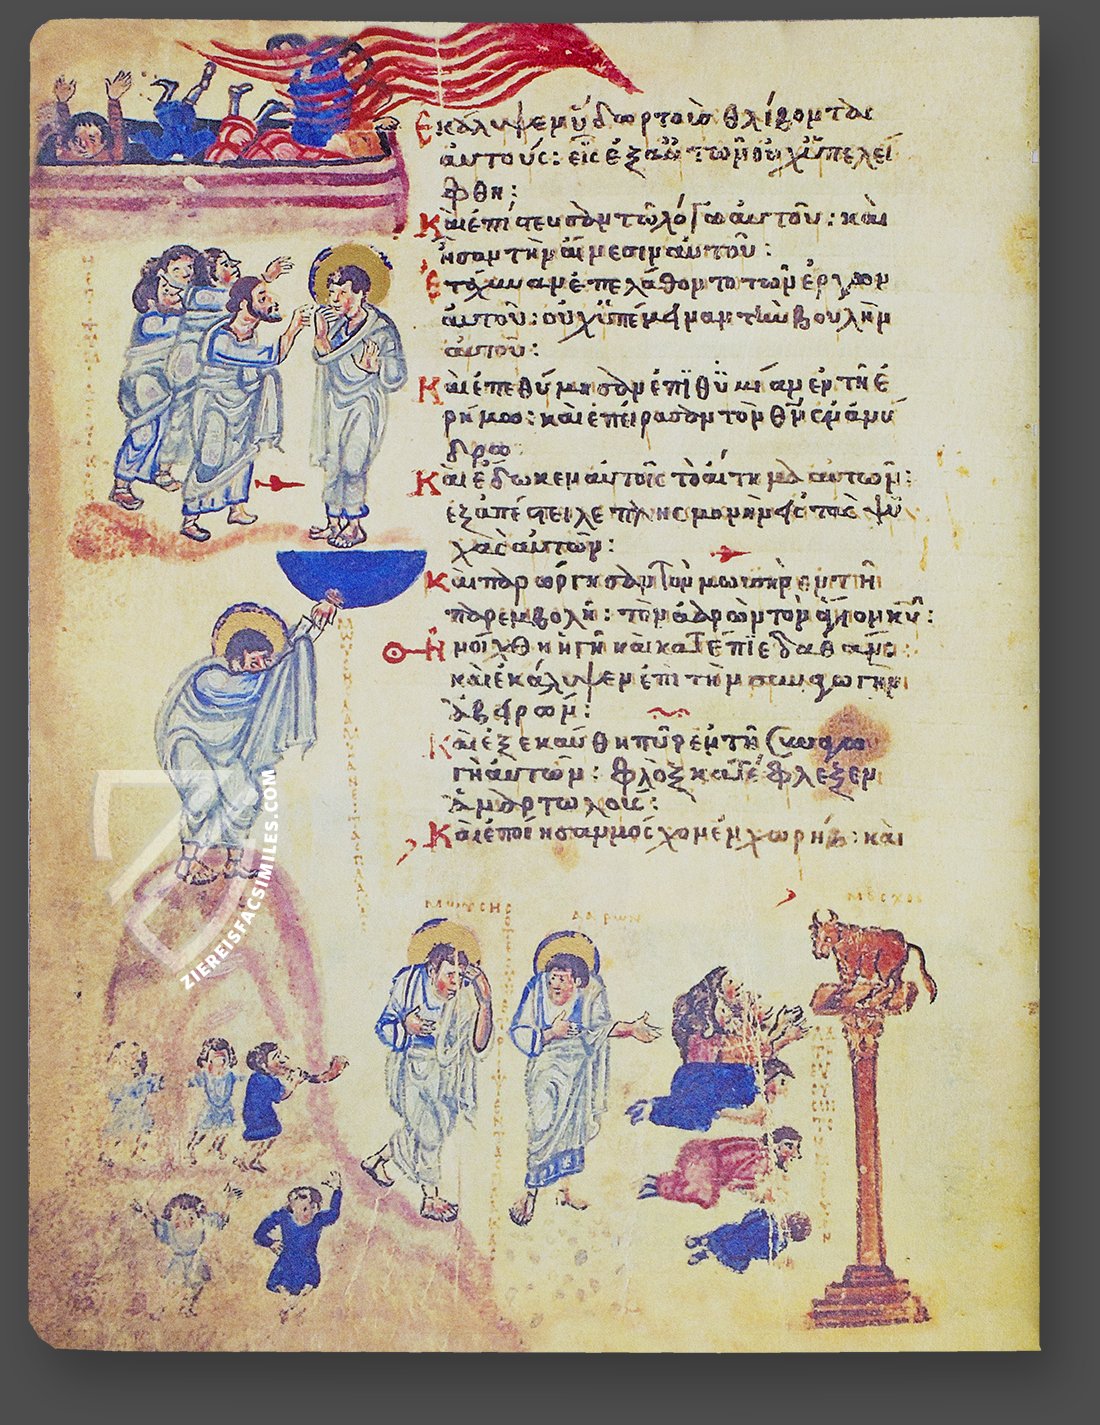 Ἐκάλυψεν ὕδωρ τοὺς θλίβοντας
ἀυτούς: εἷς ἐξ ἀυτῶν οὐχ ὑπελεί
φθη:
Καὶ ἐπίστευσαν τῶ λόγω ἀυτοῦ: καὶ
ἦσαν τὴν αἴνεσιν ἀυτοῦ:
Ἐτάχυναν ἐπελάθοντο τῶν ἔργων
ἀυτοῦ: οὐχ ὑπέμειναν τὴν βουλὴν
ἀυτοῦ:
Καὶ ἐπεθύμησαν ἐπιθυμίαν ἐν τῆ ἐ
ρήμω: καὶ ἐπείρασαν τὸν θν ἐν ἀνύ
δρω
Καὶ ἔδωκεν ἀυτοῖς τὸ αἴτημα ἀυτῶν:
ἐξαπέστειλε πλησμονὴν εἰς τὰς ψυ
χὰς ἀυτῶν:
Καὶ παρώργησαν τὸν μωυσῆν ἐν τῆ
παρεμβολῆ: τὸν ἀαρὼν τὸν ἅγιον κυ:
Ἠνοίχθη ἡ γῆ καὶ κατέπιε δαθάν:
καὶ ἐκάλυψεν ἐπὶ τὴν συναγωγὴν
ἀβειρών:
Καὶ ἐξεκαύθη πῦρ ἐν τῆ συναγω
γῆ ἀυτῶν: φλὸξ κατέφλεξεν
ἁμαρτωλούς:
Καὶ ἐποίησαν μόσχον ἐν χωρήβ: καὶ
ΜΩΥΣΗΣ
ΑΑΡΩΝ
ΜΟΣΧΟΣ
ZIEREISFACSIMILES.COM